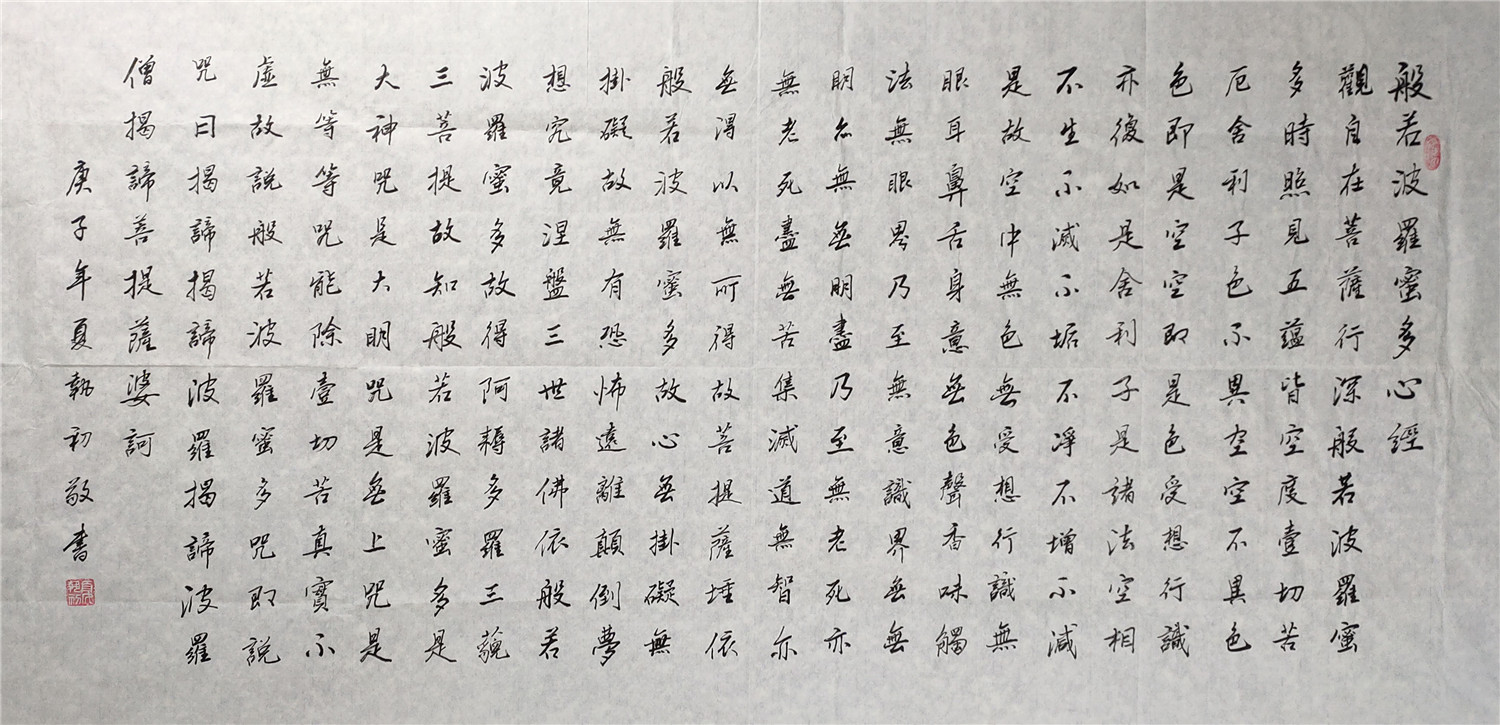 般若波羅蜜多心經
觀自在菩薩行深般若波羅蜜
多時照見五蘊皆空度壹切苦
厄舍利子色不異空空不異色
色即是空空即是色受想行識
亦復如是舍利子是諸法空相
不生不滅不垢不淨不增不減
是故空中無色無受想行識無
眼耳鼻舌身意無色聲香味觸
法無眼界乃至無意識界無無
明亦無無明盡乃至無老死亦
無老死盡無苦集滅道無智亦
無得以無所得故菩提薩埵依
般若波羅蜜多故心無掛礙無
掛礙故無有恐怖遠離顛倒夢
想究竟涅盤三世諸佛依般若
波羅蜜多故得阿耨多羅三藐
三菩提故知般若波羅蜜多是
大神咒是大明咒是無上咒是
無等等咒能除壹切苦真實不
虛故說般若波羅蜜多咒即說
咒曰揭諦揭諦波羅揭諦波羅
僧揭諦菩提薩婆訶
庚子年夏執初敬書